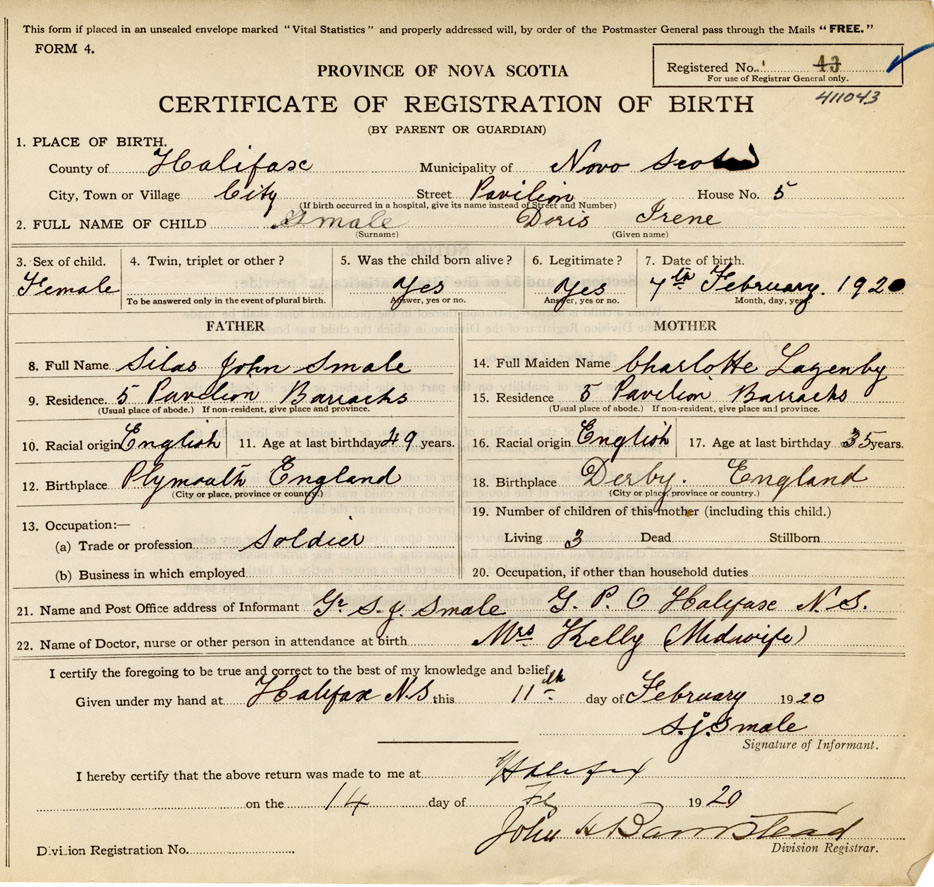 This form if placed in an unsealed envelope marked "Vital Statistics" and properly addressed will, by order of the Postmaster General pass through the Mails "FREE."
FORM 4.
Registered No. 43
For use of Registrar General only.
411043
PROVINCE OF NOVA SCOTIA
CERTIFICATE OF REGISTRATION OF BIRTH
(BY PARENT OR GUARDIAN)
1. PLACE OF BIRTH.
County of Halifax Municipality of Novo Scotia
City, Town or Village City Street Pavilion House No. 5
(If birth occurred in a hospital, give its name instead of Street and Number)
2. FULL NAME OF CHILD Smale Doris Irene
(Surname) (Given name)
3. Sex of child. 4. Twin, triplet or other? 5. Was the child born alive? 6. Legitimate? 7. Date of birth.
Female Yes Yes 7th February. 1920
To be answered only in the event of plural birth. Answer, yes or no. Answer, yes or no. Month, day, year.
FATHER MOTHER
8. Full Name Silas John Smale 14. Full Maiden Name Charlotte Lazenby
9. Residence. 5 Pavilion Barracks 15. Residence 5 Pavilion Barracks
(Usual place of abode.) If non-resident, give place and province. (Usual place of abode.) If non-resident, give place and province.
10. Racial origin English 11. Age at last birthday 49 years. 16. Racial origin English 17. Age at last birthday 35 years.
12. Birthplace Plymouth England 18. Birthplace Derby. England
(City or place, province or country.) (City or place, province or country.)
13. Occupation:— 19. Number of children of this mother (including this child.)
(a) Trade or profession Soldier Living 3 Dead Stillborn
(b) Business in which employed 20. Occupation, if other than household duties
21. Name and Post Office address of Informant Gr S. J. Smale G. P. O Halifax N.S.
22. Name of Doctor, nurse or other person in attendance at birth Mrs Kelly (Midwife)
I certify the foregoing to be true and correct to the best of my knowledge and belief.
Given under my hand at Halifax N.S this 11th day of February 1920
S.J. Smale
Signature of Informant.
I hereby certify that the above return was made to me at Halifax
on the 14 day of Fe 1920
John H Barnstead
Division Registration No. Division Registrar.